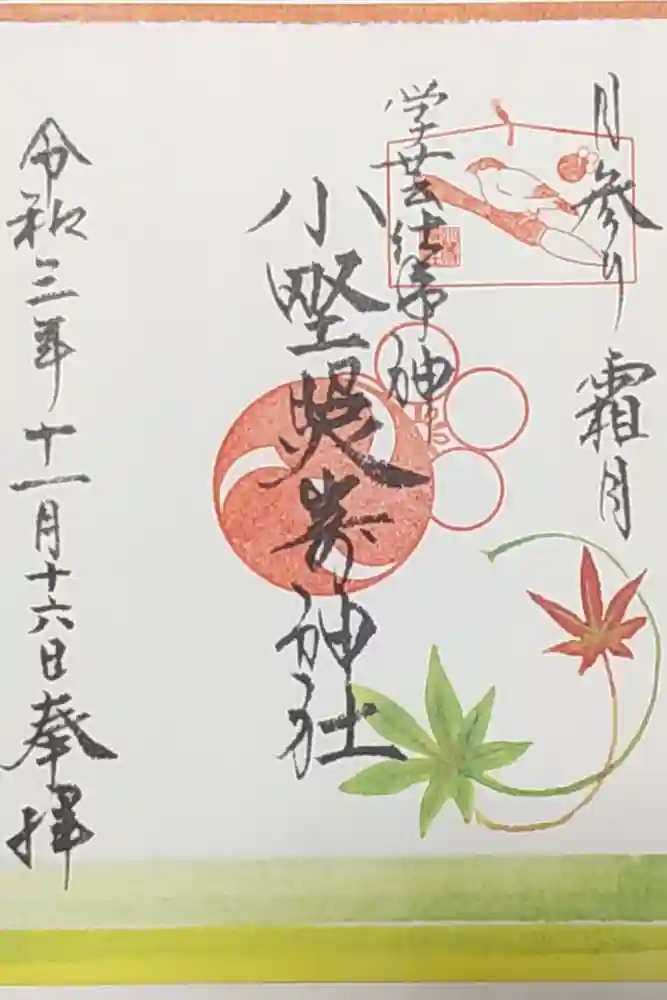 月参り 霜月
学芸仕事神
小野照崎神社
令和三年十一月十六日奉拝